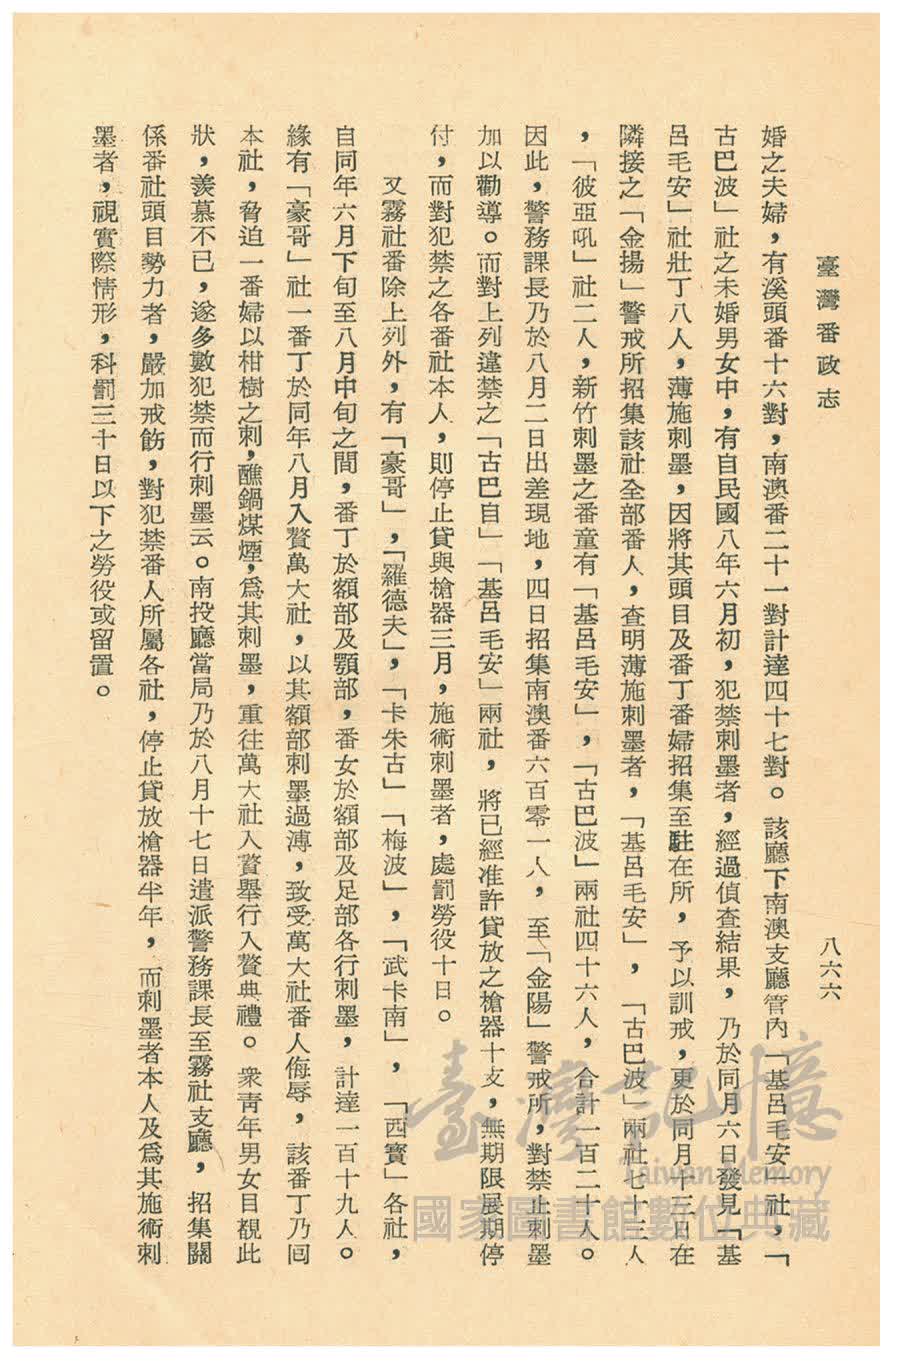 臺灣番政志
八六六
婚之夫婦，有溪頭番十六對，南澳番二十一對計達四十七對。該廳下南澳支廳管內「基呂毛安」社，「
古巴波」社之未婚男女中，有自民國八年六月初，犯禁刺墨者，經過偵查結果，乃於同月六日發見「基
呂毛安」社壯丁八人，薄施刺墨，因將其頭目及番丁番婦招集至駐在所，予以訓戒，更於同月十三日在
隣接之「金揚」警戒所招集該社全部番人，查明薄施刺墨者，「基呂毛安」，「古巴波」兩社七十三人
，「彼亞吼」社二人，新竹刺墨之番童有「基呂毛安」，「古巴波」兩社四十六人，合計一百二十人。
因此，警務課長乃於八月二日出差現地，四日招集南澳番六百零一人，至「金陽」警戒所，對禁止刺墨
加以勸導。而對上列違禁之「古巴自」「基呂毛安」兩社，將已經准許貸放之槍器十支，無期限展期停
付，而對犯禁之各番社本人，則停止貸與槍器三月，施術刺墨者，處罰勞役十日。
又霧社番除上列外，有「豪哥」，「羅德夫」，「卡朱古」「梅波」，「武卡南」，「西寳」各社，
自同年六月下旬至八月中旬之間，番丁於額部及顎部，番女於額部及足部各行刺墨，計達一百十九人。
緣有「豪哥」社一番丁於同年八月入贅萬大社，以其額部刺墨過溥，致受萬大社番人侮辱，該番丁乃囘
本社，脅迫一番婦以柑樹之刺，醮鍋煤煙，爲其刺墨，重往萬大社入贅舉行入贅典禮。衆靑年男女目覩此
狀，羨慕不已，遂多數犯禁而行刺墨云。南投廳當局乃於八月十七日遣派警務課長至霧社支廳，招集關
係番社頭目勢力者，嚴加戒飭，對犯禁番人所屬各社，停止貸放槍器半年，而刺墨者本人及爲其施術刺
墨者，視實際情形，科罰三十日以下之勞役或留置。
臺灣記憶
Taiwan Memory
國家圖書館數位典藏